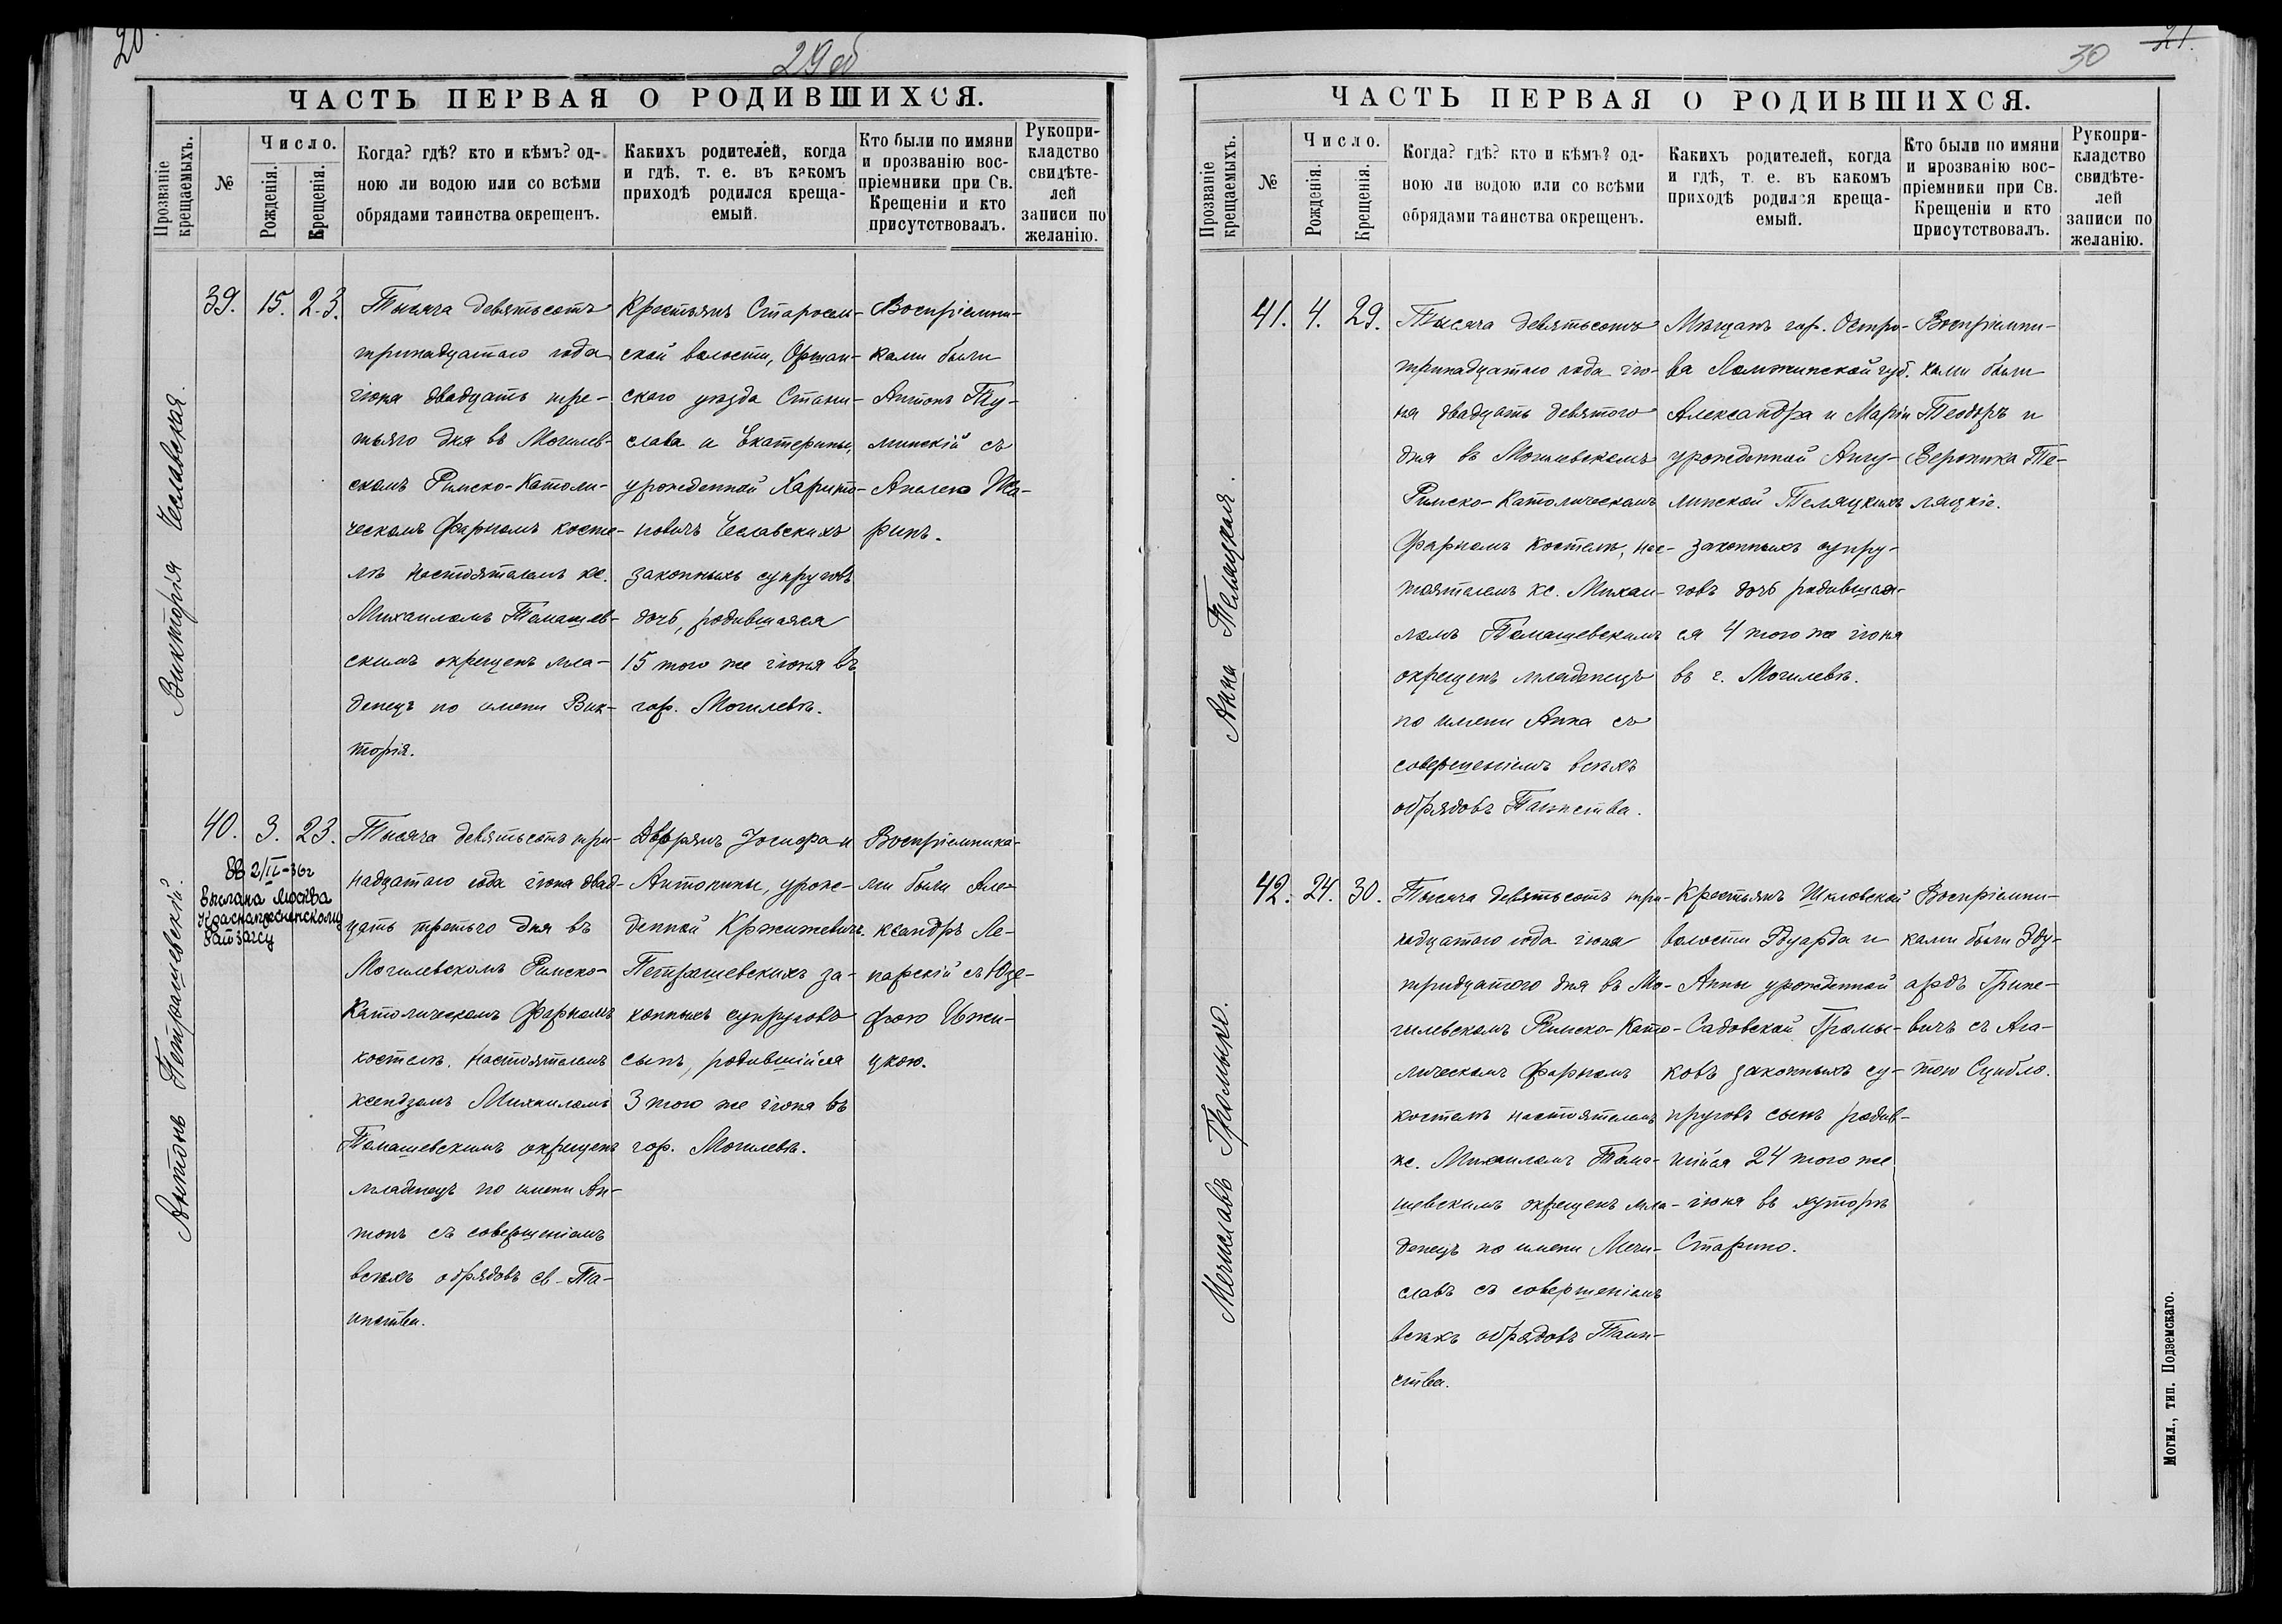 20.
29 об
ЧАСТЬ ПЕРВАЯ О РОДИВШИХСЯ.
Прозваніе
крещаемыхъ.
№
Число.
Рожденія.
Крещенія.
Когда? гдѣ? кто и кѣмъ? од-
ною ли водою или со всѣми
обрядами таинства окрещенъ.
Какихъ родителей, когда
и гдѣ, т. е. въ какомъ
приходѣ родился креща-
емый.
Кто были по имяни
и прозванію вос-
пріемники при Св.
Крещеніи и кто
присутствовалъ.
Рукопри-
кладство
свидѣте-
лей
записи по
желанію.
Викторія Чеславская.
39.
15.
23.
Тысяча девятьсотъ
тринадцатаго года
іюня двадцать тре-
тьяго дня въ Могилев-
скомъ Римско-Католи-
ческомъ Фарномъ косте-
лѣ настоятелемъ кс.
Михаиломъ Томашев-
скимъ окрещенъ мла-
денецъ по имени Вик-
торія.
Крестьянъ Старосель-
ской волости, Оршан-
скаго уѣзда Стани-
слава и Екатерины,
урожденной Харито-
новичъ Чеславскихъ
законныхъ супруговъ
дочь, родившаяся
15 того же іюня въ
гор. Могилевѣ.
Воспріемни-
ками были
Антонъ Ту-
минскій съ
Анелею
Антонъ Петрашевскій.
40.
3.
23.
2/II-36г
Выслана Москва
Краснопресненскому
РайЗагсу
Тысяча девятьсотъ три-
надцатаго года іюня двад-
цать третьго дня въ
Могилевскомъ Римско-
Католическомъ Фарномъ
костелѣ, настоятелемъ
ксендзомъ Михаиломъ
Томашевскимъ окрещенъ
младенецъ по имени Ан-
тонъ съ совершеніемъ
всѣхъ обрядовъ св. Та-
инства.
Дворянъ Іосифа и
Антонины, урож-
денной Кржижевичъ
Петрашевскихъ за-
конныхъ супруговъ
сынъ, родившійся
3 того же іюня въ
гор. Могилевѣ.
Воспріемника-
ми были Але-
ксандръ Ле-
нарскій съ Юзе-
фою Ижи-
цкою.
21.
30
ЧАСТЬ ПЕРВАЯ О РОДИВШИХСЯ.
Прозваніе
крещаемыхъ.
№
Число.
Рожденія.
Крещенія.
Когда? гдѣ? кто и кѣмъ? од-
ною ли водою или со всѣми
обрядами таинства окрещенъ.
Какихъ родителей, когда
и гдѣ, т. е. въ какомъ
приходѣ родился креща-
емый.
Кто были по имяни
и прозванію вос-
пріемники при Св.
Крещеніи и кто
присутствовалъ.
Рукопри-
кладство
свидѣте-
лей
записи по
желанію.
Анна Теляцкая.
41.
4.
29.
Тысяча девятьсотъ
тринадцатаго года ію-
ня двадцать девятого
дня въ Могилевскомъ
Римско-Католическомъ
Фарномъ Костелѣ, нас-
тоятелемъ кс. Михаи-
ломъ Томашевскимъ
окрещенъ младенецъ
по имени Анна съ
совершеніемъ всѣхъ
обрядовъ Таинства.
Мѣщанъ гор. Остро-
ва Ломжинской губ.
Александра и Маріи
урожденной Ангу-
линской Теляцкихъ
законныхъ супру-
говъ дочь родившая-
ся 4 того же іюня
въ г. Могилевѣ.
Воспріемни-
ками были
Теодоръ и
Вероника Те-
ляцкіе.
Мечиславъ Громыко.
42.
24.
30.
Тысяча девятьсотъ три-
надцатаго года іюня
тридцатого дня въ Мо-
гилевскомъ Римско-Като-
лическомъ Фарномъ
костелѣ настоятелемъ
кс. Михаиломъ Тома-
шевскимъ окрещенъ мла-
денецъ по имени Мечи-
славъ съ совершеніемъ
всѣхъ обрядовъ Таин-
ства.
Крестьянъ Шкловской
волости Эдуарда и
Анны урожденной
Садовской Громы-
ковъ законныхъ су-
пруговъ сынъ родив-
шійся 24 того же
іюня въ хуторѣ
Старино.
Воспріемни-
ками были Эду-
ардъ Грине-
вичъ съ Ага-
тою Сцибло.
Могил., тип. Подземскаго.